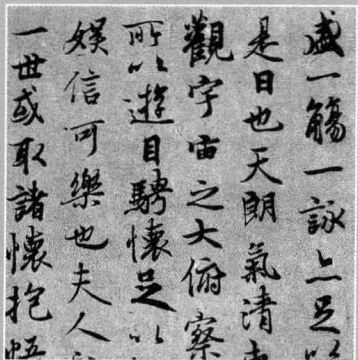 盛一觴一詠亦足以
是日也天朗氣清
觀宇宙之大俯察
所以遊目騁懷足以
娛信可樂也夫人
一世或取諸懷抱悟